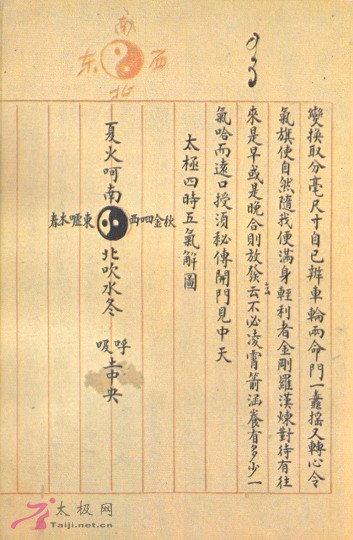 南
东 西
北
變換取分毫尺寸自己辦車輪兩命門一纛搖又轉心令
氣旗使自然隨我便滿身輕利者金剛羅漢煉對待有往
來是早或是晚合則放發去不必凌霄箭涵養有多少一
氣哈而遠口授須秘傳開門見中天
太極四時五氣解圖
夏火呵南
春木噓東 西呬金秋
北吹水冬
呼吸
土中央
太极网
Taiji.net.cn